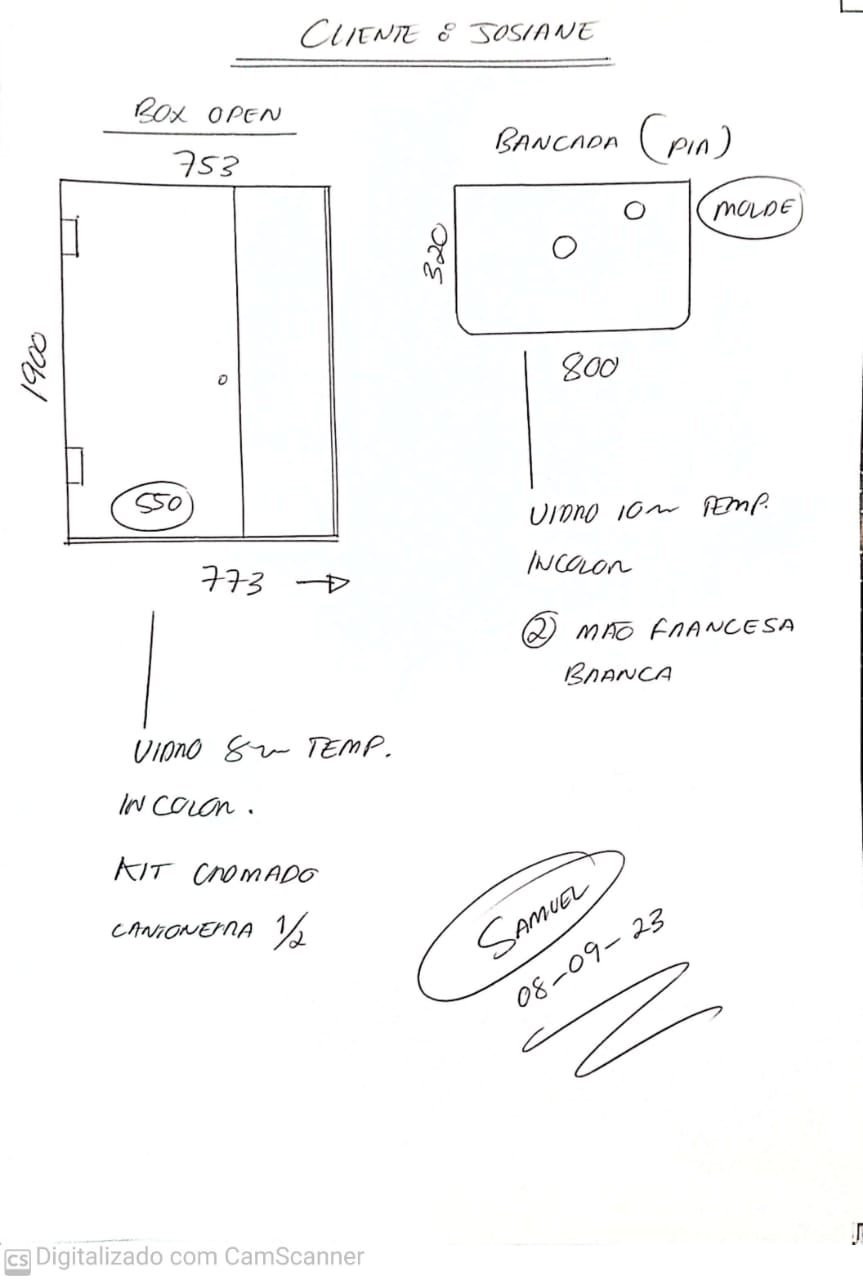 CLIENTE : JOSIANE
BOX OPEN
753
1900
550
773
VIDRO 8m TEMP.
INCOLOR.
KIT CROMADO
CANTONEIRA 1/2
BANCADA (PIA)
MOLDE
320
800
VIDRO 10m TEMP.
INCOLOR
2 MÃO FRANCESA
BRANCA
SAMUEL
08-09-23
CS Digitalizado com CamScanner